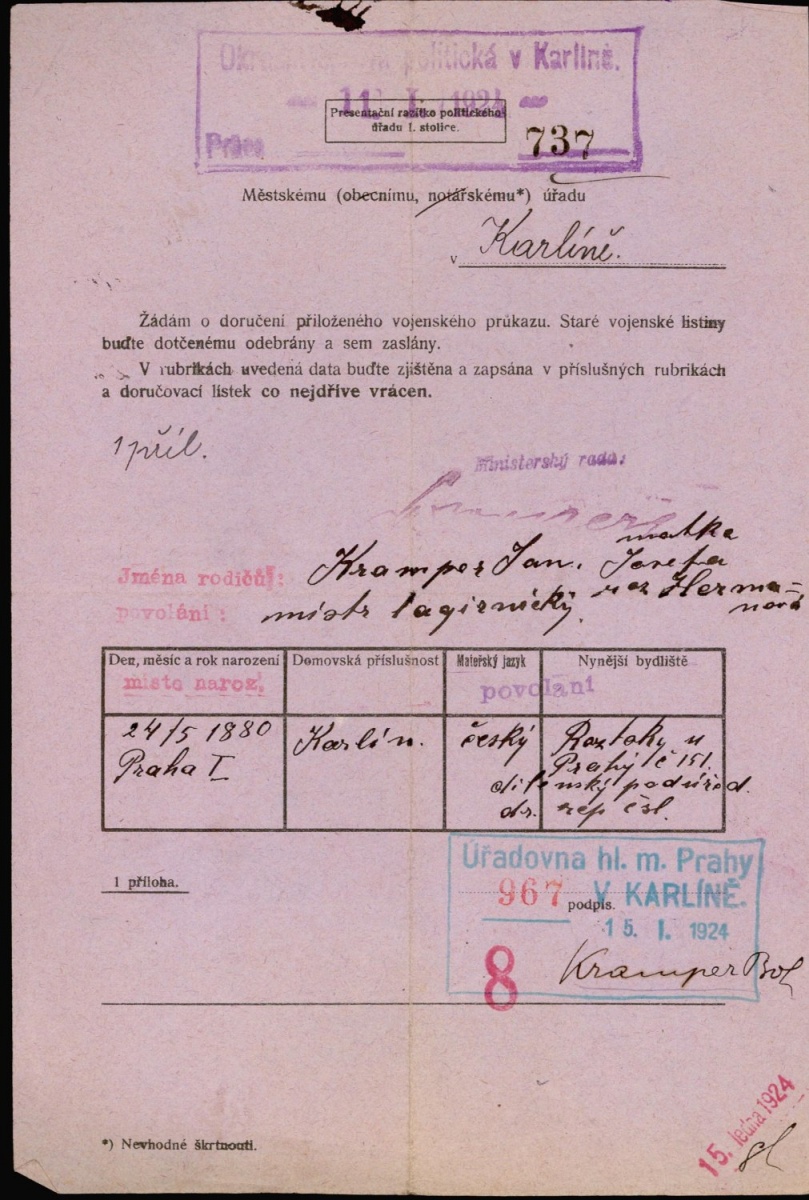 Okresní správa politická v Karlíně.
11. I. 1924
Presentační razítko politického
úřadu I. stolice.
737
Městskému (obecnímu, notářskému*) úřadu
v Karlíně.
Žádám o doručení přiloženého vojenského průkazu. Staré vojenské listiny
buďte dotčenému odebrány a sem zaslány.
V rubrikách uvedená data buďte zjištěna a zapsána v příslušných rubrikách
a doručovací lístek co nejdříve vrácen.
1 příl.
Ministerský rada:
matka
Jména rodičů: Kramper Jan. Josefa
roz Herma=
nová
povolání: mistr lagirnický.
Den, měsíc a rok narození Domovská příslušnost Mateřský jazyk Nynější bydliště
místo naroz. povolání
24/5 1880 Karlín. český Roztoky u
Praha I Prahy č 151.
dílenský podúřed.
dr. rep čsl.
1 příloha.
Úřadovna hl. m. Prahy
967 V KARLÍNĚ.
podpis.
15. I. 1924
8
Kramper Boh
15. ledna 1924
*) Nevhodné škrtnouti.